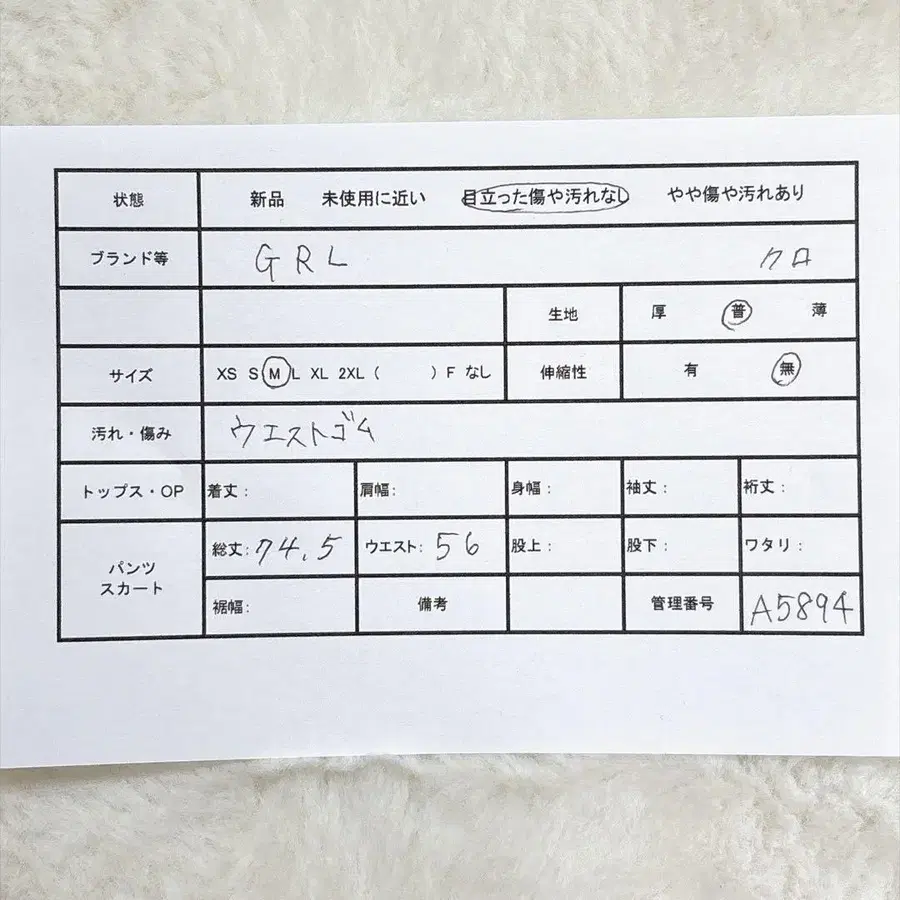 状態 新品 未使用に近い 目立った傷や汚れなし やや傷や汚れあり
ブランド等 GRL クロ
生地 厚 普 薄
サイズ XS S M L XL 2XL ( ) F なし 伸縮性 有 無
汚れ・傷み ウエストゴム
トップス・OP 着丈: 肩幅: 身幅: 袖丈: 裄丈:
パンツ
スカート
総丈: 74.5 ウエスト: 56 股上: 股下: ワタリ:
裾幅: 備考 管理番号 A5894